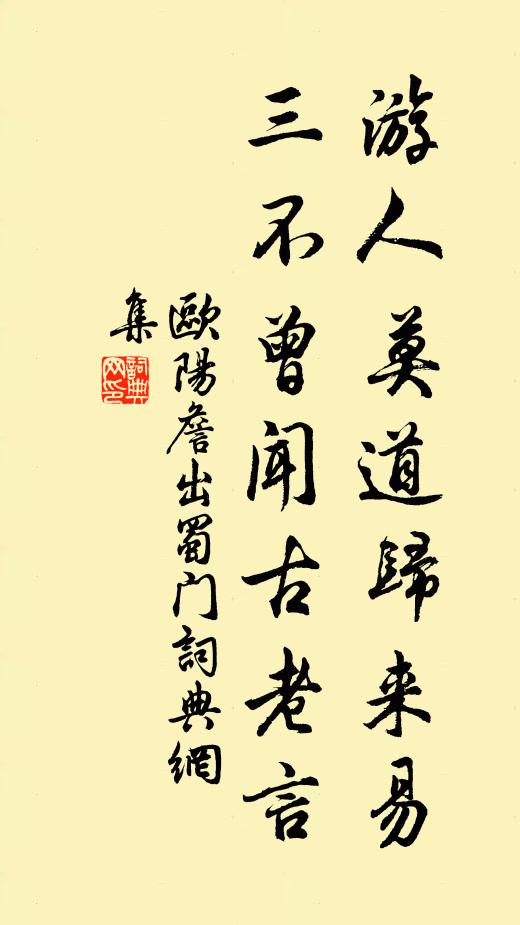 游人莫道歸来易
三不曾闻古老言
歐陽詹出蜀门詞典網
集
詞典网印